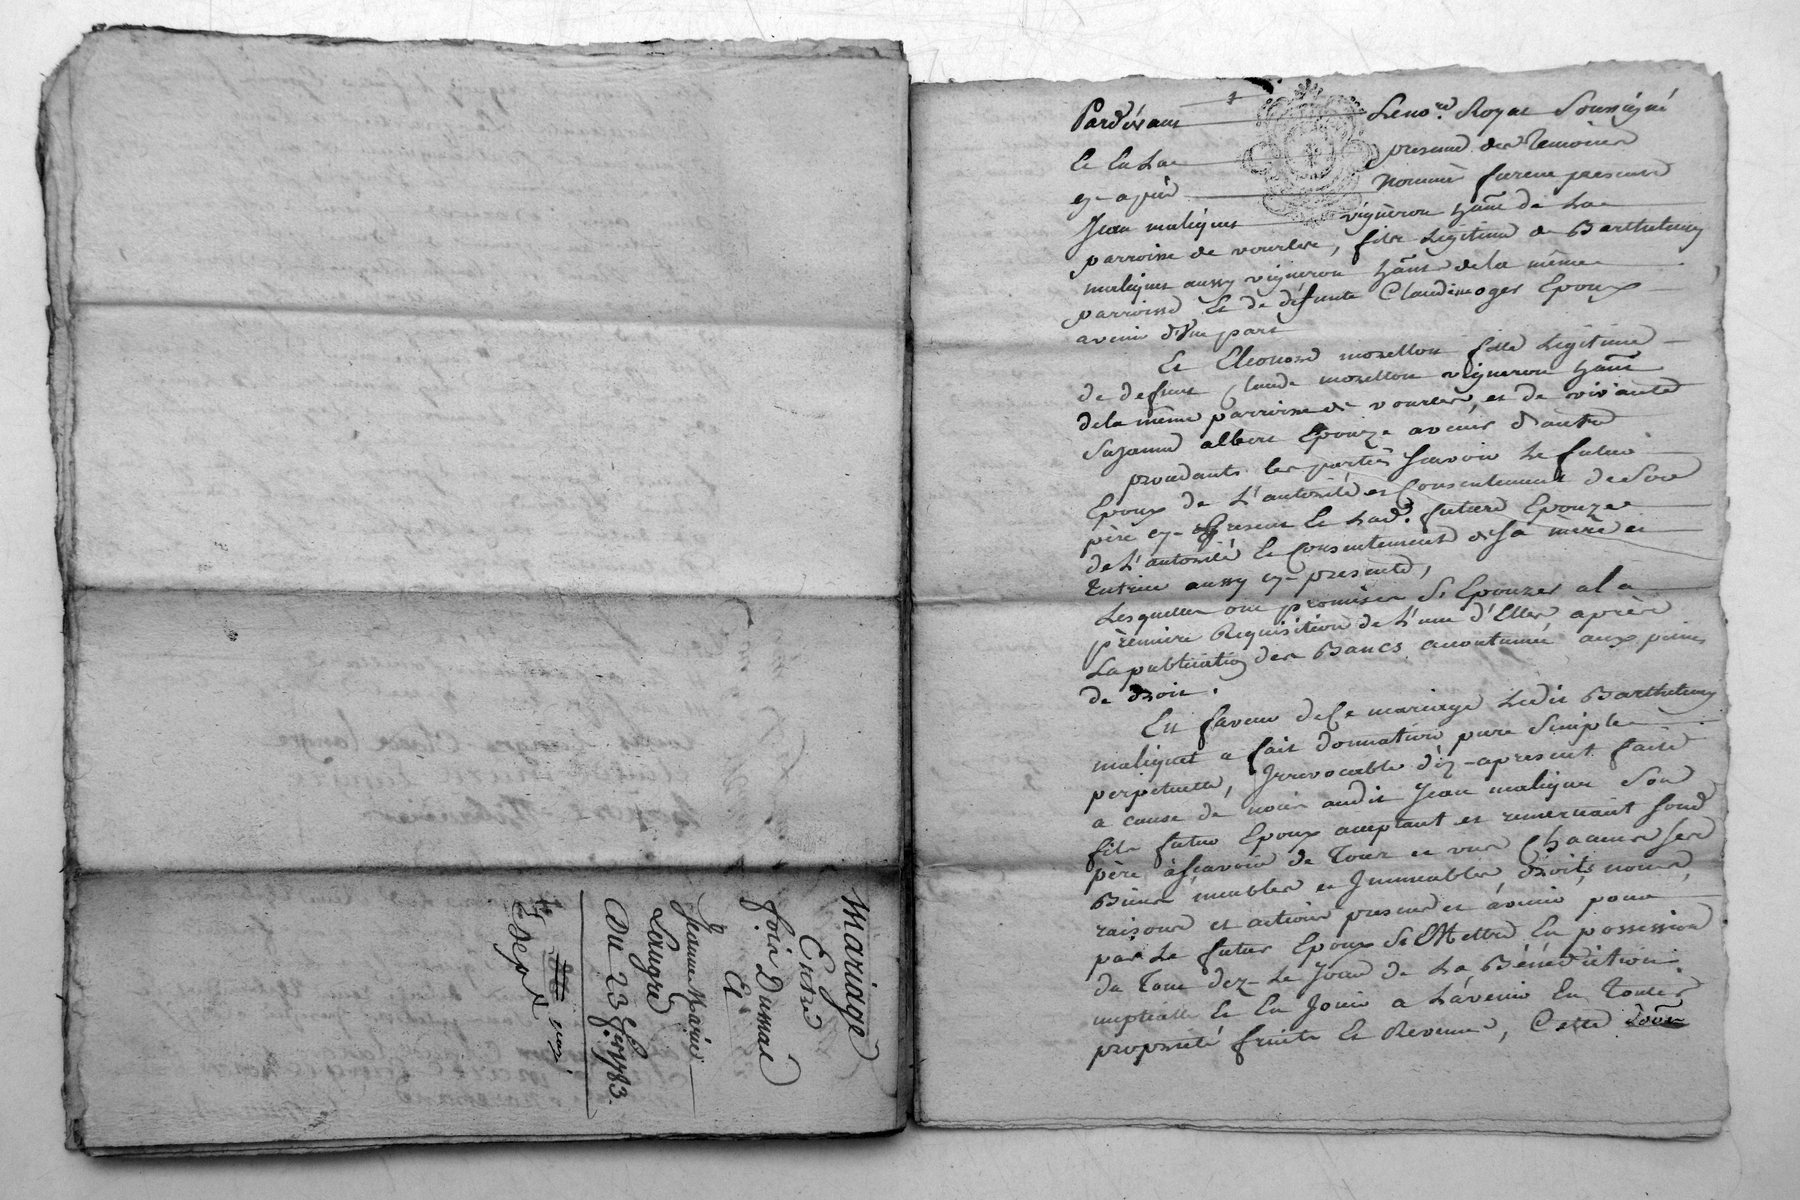 mariage
Entre
foix Dumas
Et
Jeanne Marie
Laugre
Du 23 fer 1783.
Pardevant Le no.re Royal Soussigné
Et En La presence des Temoins
cy-après Nommés furent presents
Jean maliquet vigneron ha͠nt de La
parroisse de vourles, fils Legitime de Barthelemy
maliquet aussy vigneron ha͠nt de la même
parroisse Et de défunte Claudine oger Epoux
avenir d'Une part
Et Eleonore morellon fille Legitime
de defunt Claude morellon vigneron ha͠nt
de la même parroisse de vourles, et de vivante
Suzanne albert Epouze avenir d'autre
procedants les parties scavoir Le futur
Epoux de L'autorité et Consentement de Son
père cy-present Et Lad. future Epouze
de L'autorité Et Consentement de sa mère et
tutrice aussy cy-presente,
Lesquelles ont promises de s'Epouzer a la
première Requisition de L'une d'Elles après
La publication des Bancs accoutumée aux peines
de droit.
En faveur de Ce mariage Ledit Barthelemy
maliquet a fait donnation pure Simple
perpetuelle, Irrevocable dèz-apresent faite
a cause de noces audit Jean maliquet Son
fils futur Epoux acceptant et remerciant Sond
père àscavoir de Tous et uns Chacuns ses
Biens meubles et Immeubles droits noms
raisons et actions presents et àvenir pour
par Le futur Epoux Se Mettre En possession
du Tout dez-Le Jour de La Bénédiction
nuptialle Et En Jouir a L'avenir En Toutes
propriété fruits Et Revenus, Cette